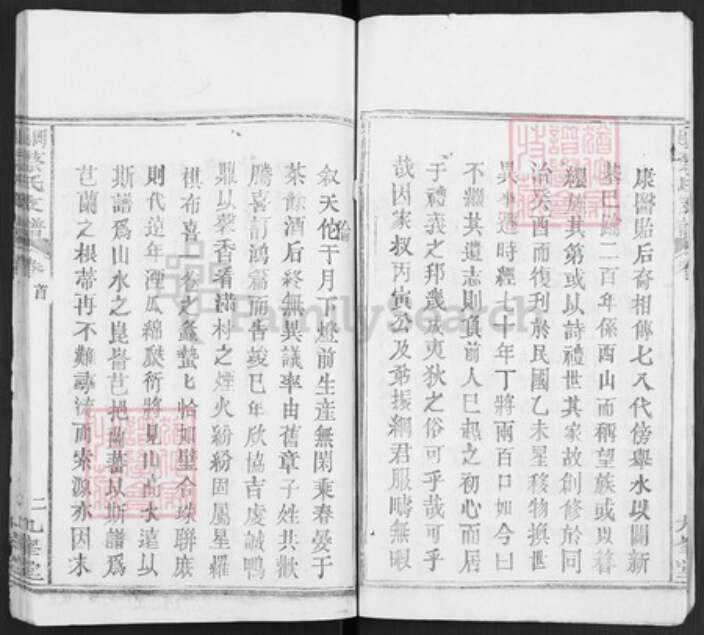 康醫貽后裔相傳七八代傍舉水以開新
基已踰二百年係西山而稱望族或以簪
纓於其第或以詩禮世其家故創修於同
治癸酉而復刊於民國乙未星移物換世
異事遷時經七十年丁將兩百口如今日
不繼其遺志則負前人已起之初心而居
于禮義之邦幾成夷狄之俗可乎哉可乎
哉因家叔丙寅公及爺振綱君服疇無暇
敘天伦于月下燈前生産無閑乘春晏于
茶餘酒后終無異議率由舊章子姓共歡
騰喜訂鴻篇而告竣巳年欣協吉虔誠鴨
鼎以馨香看滿村之煙火紛紛固屬星羅
棋布喜一卷之螽蟄匕恰如璧合珠聯庶
則代遠年湮瓜綿瓞衍將見山高水遠以
斯譜爲山水之崑崙芑地蘭蕃以斯譜爲
芑蘭之根蒂再不難尋流而索源亦因木
蔡氏支譜
卷首
二
九峯堂
FamilySearch